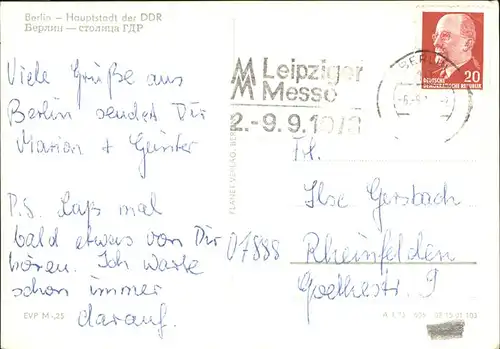 Berlin – Hauptstadt der DDR
Берлин — столица ГДР
Viele Grüße aus
Berlin sendet Dir
Marion + Günter
P.S. Laß mal
bald etwas von Dir
hören. Ich warte
schon immer
darauf.
EVP M -,25
PLANET-VERLAG
BERLIN
MM Leipziger
Messe
2.-9.9.1973
20
DEUTSCHE
DEMOKRATISCHE REPUBLIK
Frl.
Ilse Gersbach
07888 Rheinfelden
Goethestr. 9